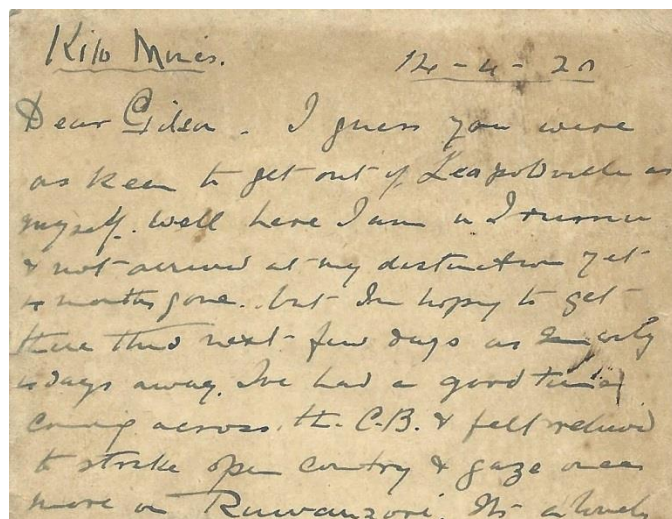 Kilo Mines.
12-4-20
Dear Gilson. I guess you were
as keen to get out of Leopoldville as
myself. Well here I am in Irumu
& not arrived at my destination yet
4 months gone. but I'm hoping to get
there this next few days as only
4 days away. I've had a good time
coming across the C.B. & felt relieved
to strike open country & gaze once
more on Ruwanzori. Its a lovely